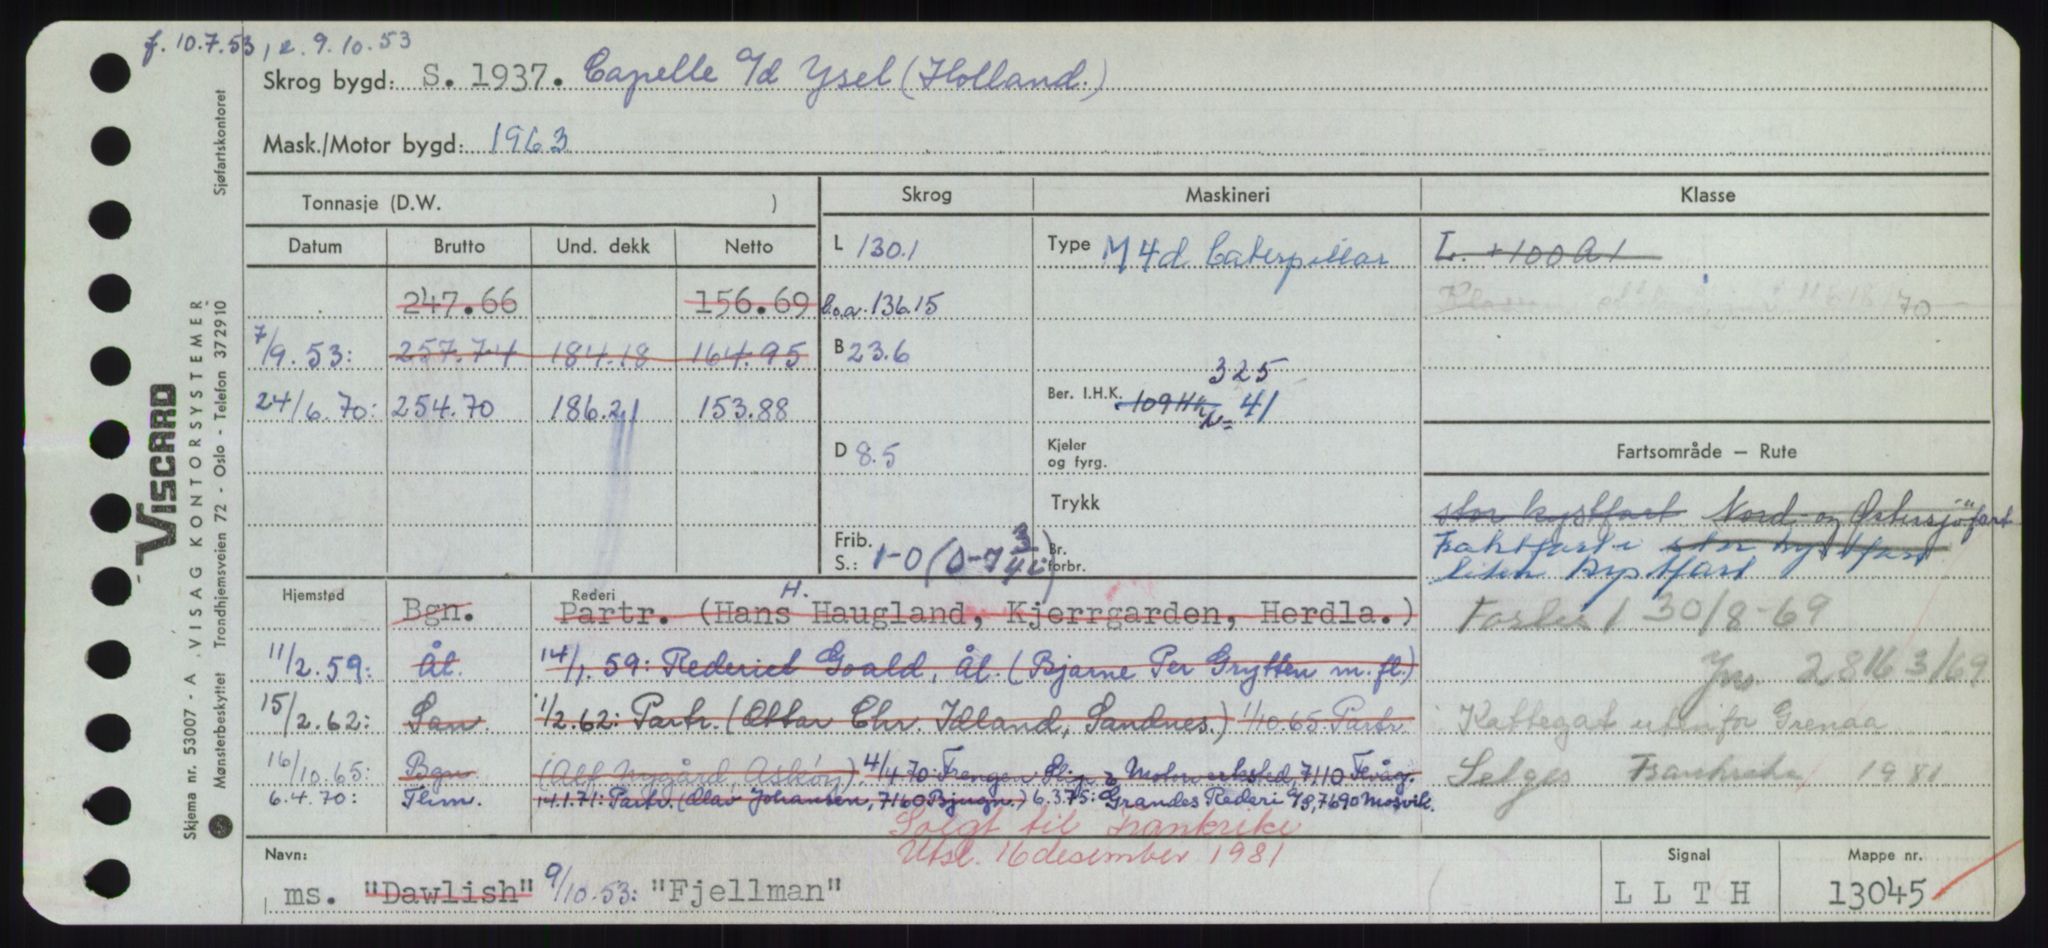 f. 10.7.53, e. 9.10.53
Skrog bygd: S. 1937. Capelle a/d Ysel (Holland.)
Mask./Motor bygd: 1963
Tonnasje (D.W. )
Skrog
Maskineri
Klasse
Datum Brutto Und. dekk Netto
L 130.1
Type M 4d Caterpillar
L. +100A1
247.66 156.69
l.o.a. 136.15
70
7/9.53: 257.74 184.18 164.95
B 23.6
325
24/6.70: 254.70 186.21 153.88
Ber. I.H.K. 109 Hk 41
D 8.5
Kjeler
og fyrg.
Fartsområde – Rute
Trykk
stor kystfart Nord- og Østersjöfart
Fraktfart i stor kystfart
liten kystfart
Frib.
S.: 1-0 (0-7 3/4)
Br.
forbr.
Hjemsted Rederi
Bgn. Partr. (Hans H. Haugland, Kjerrgarden, Herdla.)
Forlis 1 30/8-69
11/2.59: Ål. 14/1.59: Rederiet Goald, Ål. (Bjarne Per Grytten m.fl.)
28 3/69
15/2.62: San. 1/2.62: Partr. (Ottar Chr. Idland, Sandnes.) 1/10.65 Partr.
Kattegat utenfor Grenaa
16/10.65: Bgn (Alf Nygård, Askøy). 4/4.70: Frengen Slip & Motorverksted, 7110 Flvåg.
Selges Frankrike 1981
6.4.70: Thm. 14.1.71: Partr. (Olav Johansen, 7160 Bjugn.) 6.3.75: Grandes Rederi A/S, 7690 Mosvik.
Solgt til Frankrike
Utsl. 16 desember 1981
Navn:
ms. "Dawlish" 9/10.53: "Fjellman"
Signal
L L T H
Mappe nr.
13045
Viscard
VISAG KONTORSYSTEMER
Skjema nr. 53007 - A
Mønsterbeskyttet Trondhjemsveien 72 - Oslo - Telefon 372910 Sjøfartskontoret